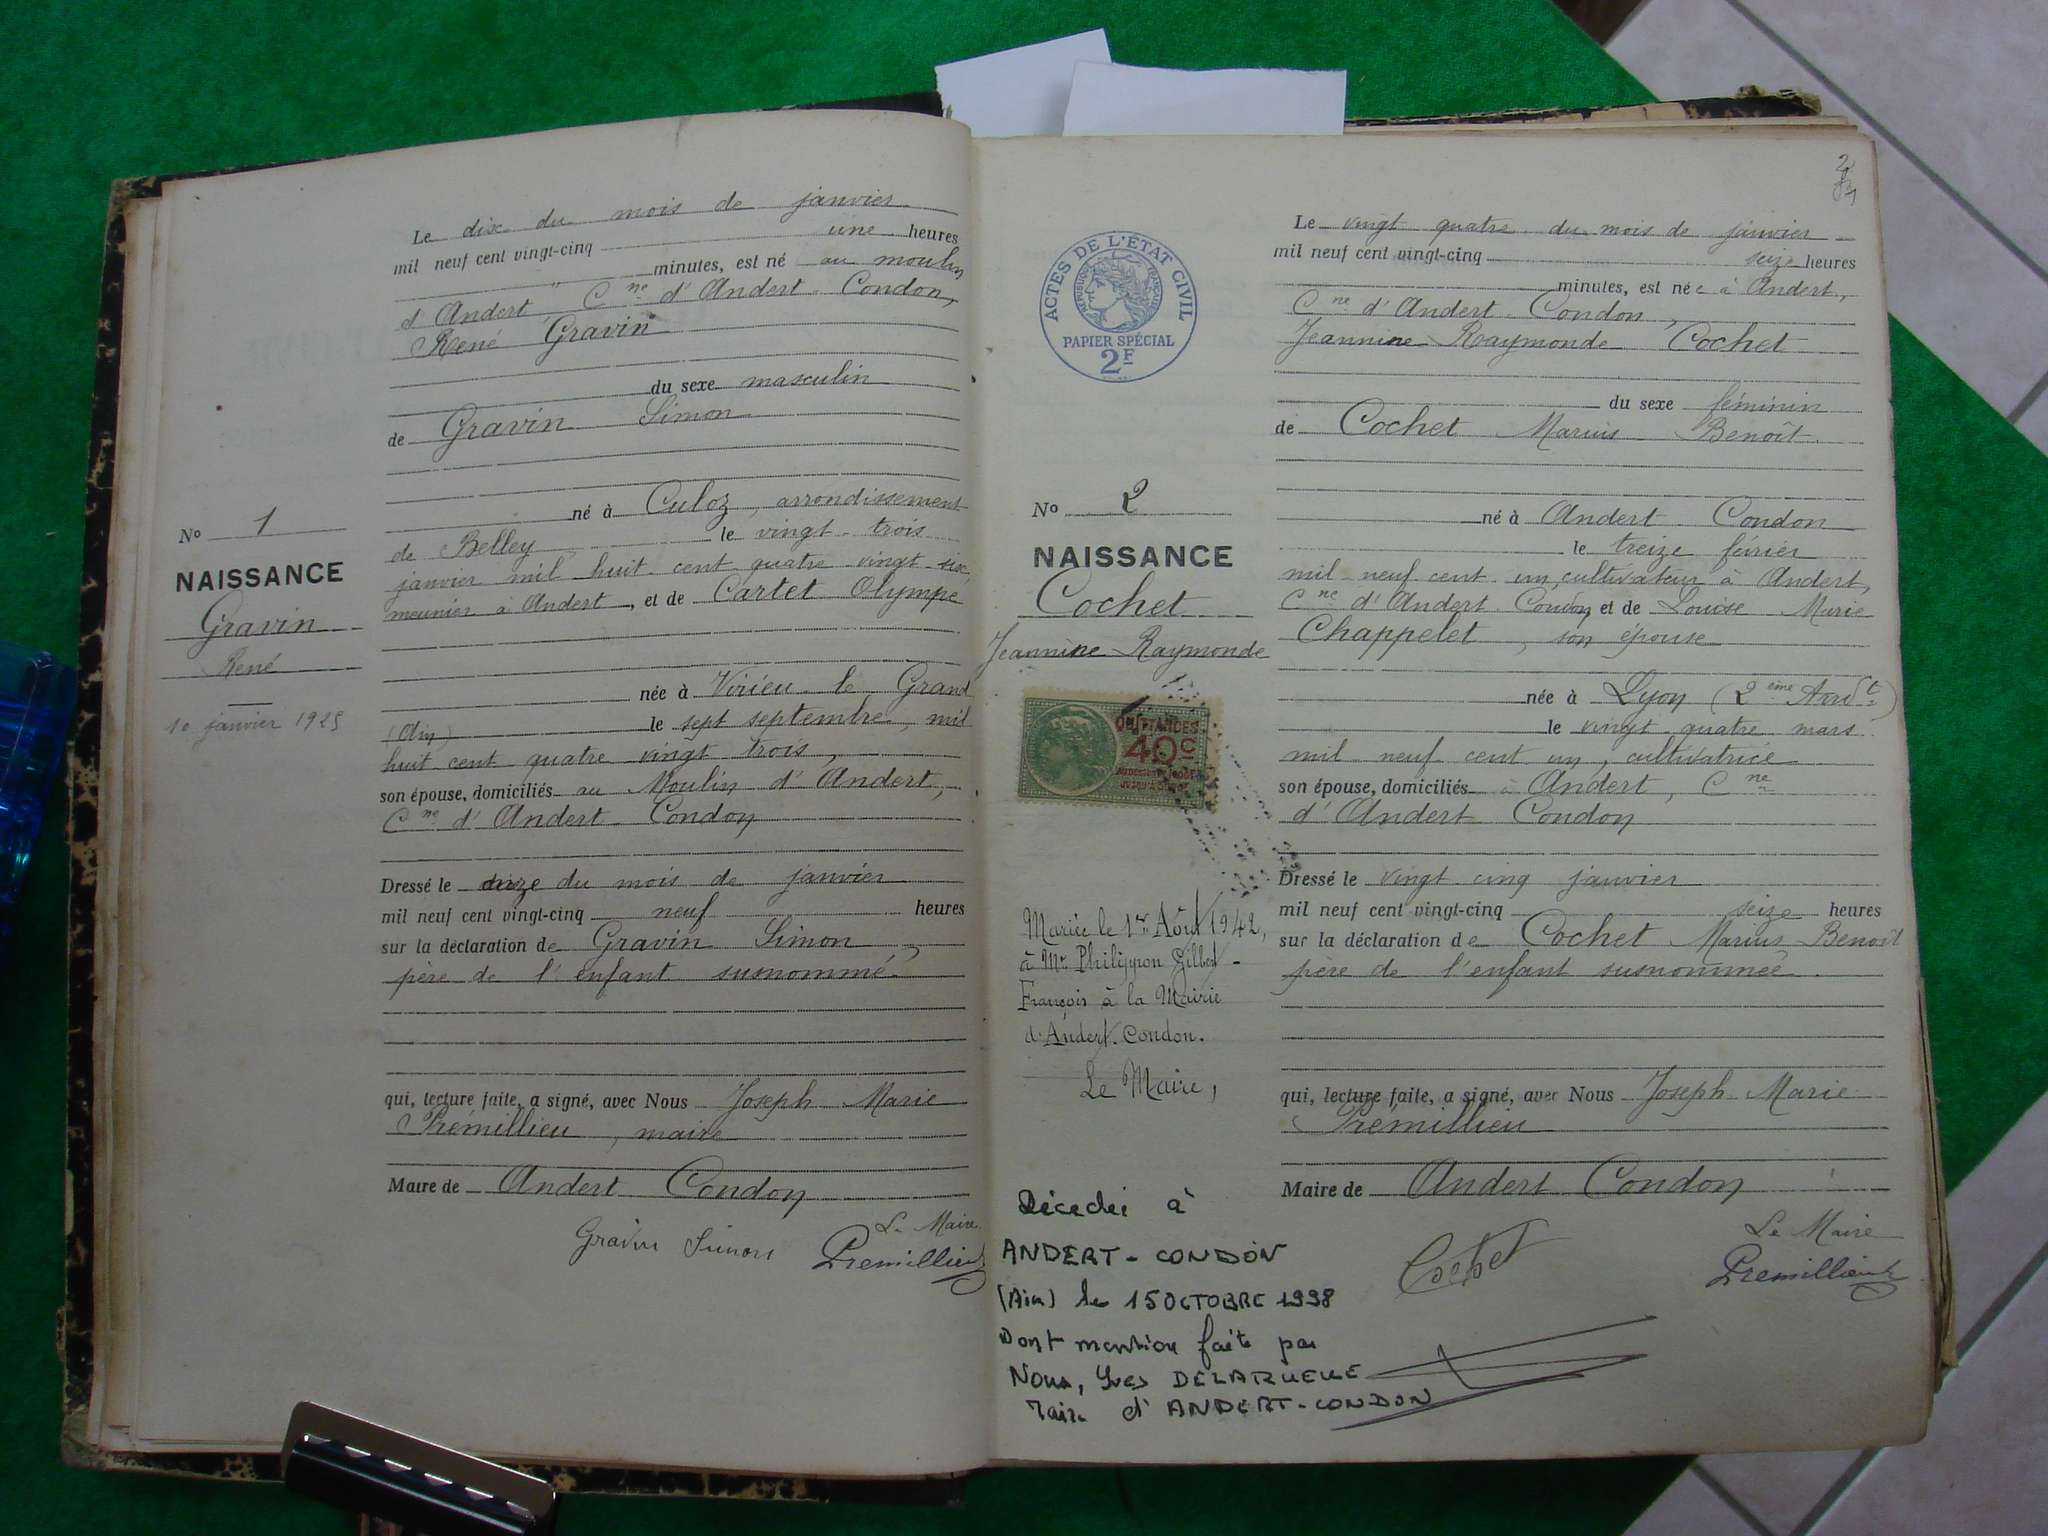 Le dix du mois de janvier
mil neuf cent vingt-cinq une heures
minutes, est né au moulin
d'Andert Cne d'Andert-Condon,
René Gravin
du sexe masculin
de Gravin Simon
né à Culoz, arrondissement
de Belley le vingt-trois
janvier mil huit cent quatre vingt six
meunier à Andert, et de Cartet Olympe
née à Virieu-le-Grand
(Ain) le sept septembre, mil
huit cent quatre vingt trois,
son épouse, domiciliés au Moulin d'Andert,
Cne d'Andert-Condon
Dressé le onze du mois de janvier
mil neuf cent vingt-cinq neuf heures
sur la déclaration de Gravin Simon,
père de l'enfant susnommé.
qui, lecture faite, a signé, avec Nous Joseph Marie
Prémillieu, maire
Maire de Andert Condon
Gravin Simon
Le Maire
Premillieu
No 1
NAISSANCE
Gravin
René
10 janvier 1925
2
Le vingt quatre du mois de janvier
mil neuf cent vingt-cinq seize heures
minutes, est née à Andert,
Cne d'Andert-Condon,
Jeannine Raymonde Cochet
du sexe féminin
de Cochet Marius Benoît
né à Andert Condon
le treize février
mil neuf cent un, cultivateur à Andert,
Cne d'Andert-Condon, et de Louise Marie
Chappelet, son épouse
née à Lyon (2ème Arrdt)
le vingt quatre mars
mil neuf cent un, cultivatrice
son épouse, domiciliés à Andert, Cne
d'Andert Condon
Dressé le vingt cinq janvier
mil neuf cent vingt-cinq seize heures
sur la déclaration de Cochet Marius Benoît
père de l'enfant susnommée.
qui, lecture faite, a signé, avec Nous Joseph Marie
Prémillieu
Maire de Andert Condon
Cochet
Le Maire
Premillieu
ACTES DE L'ÉTAT CIVIL
RÉPUBLIQUE FRANÇAISE
PAPIER SPÉCIAL
2F
No 2
NAISSANCE
Cochet
Jeannine Raymonde
QUITTANCES
40c
Mariée le 1er Août 1942,
à Mr Philippon Gilbert-
François à la Mairie
d'Andert-Condon.
Le Maire,
Décédée à
ANDERT-CONDON
(Ain) le 15 OCTOBRE 1998
Dont mention faite par
Nous, Yves DELARUELLE
Maire d'ANDERT-CONDON